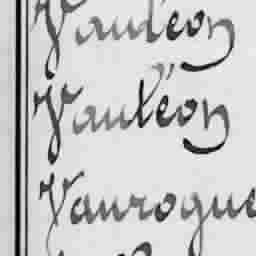 Vauléon
Vauléon
Vaurogue